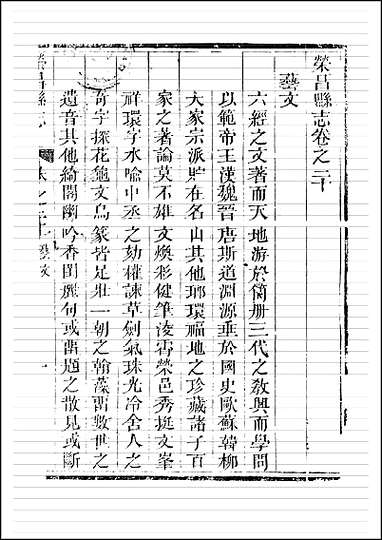 榮昌縣志卷之二十
藝文
六經之文著而天地游於簡册三代之敎興而學問
以範帝王漢魏晉唐斯道淵源垂於國史歐蘇韓柳
大家宗派貯在名山其他瑯環福地之珍藏諸子百
家之著論莫不雄文煥彩健筆淩霄榮邑秀挺文峯
祥環字水喻中丞之劾權諫草劍氣珠光冷舍人之
奇字探花龜文鳥篆皆足壯一朝之翰藻畱數世之
遺音其他綺閣幽吟香閨麗句或畱題之散見或斷
榮昌縣志
卷之二十 藝文
一